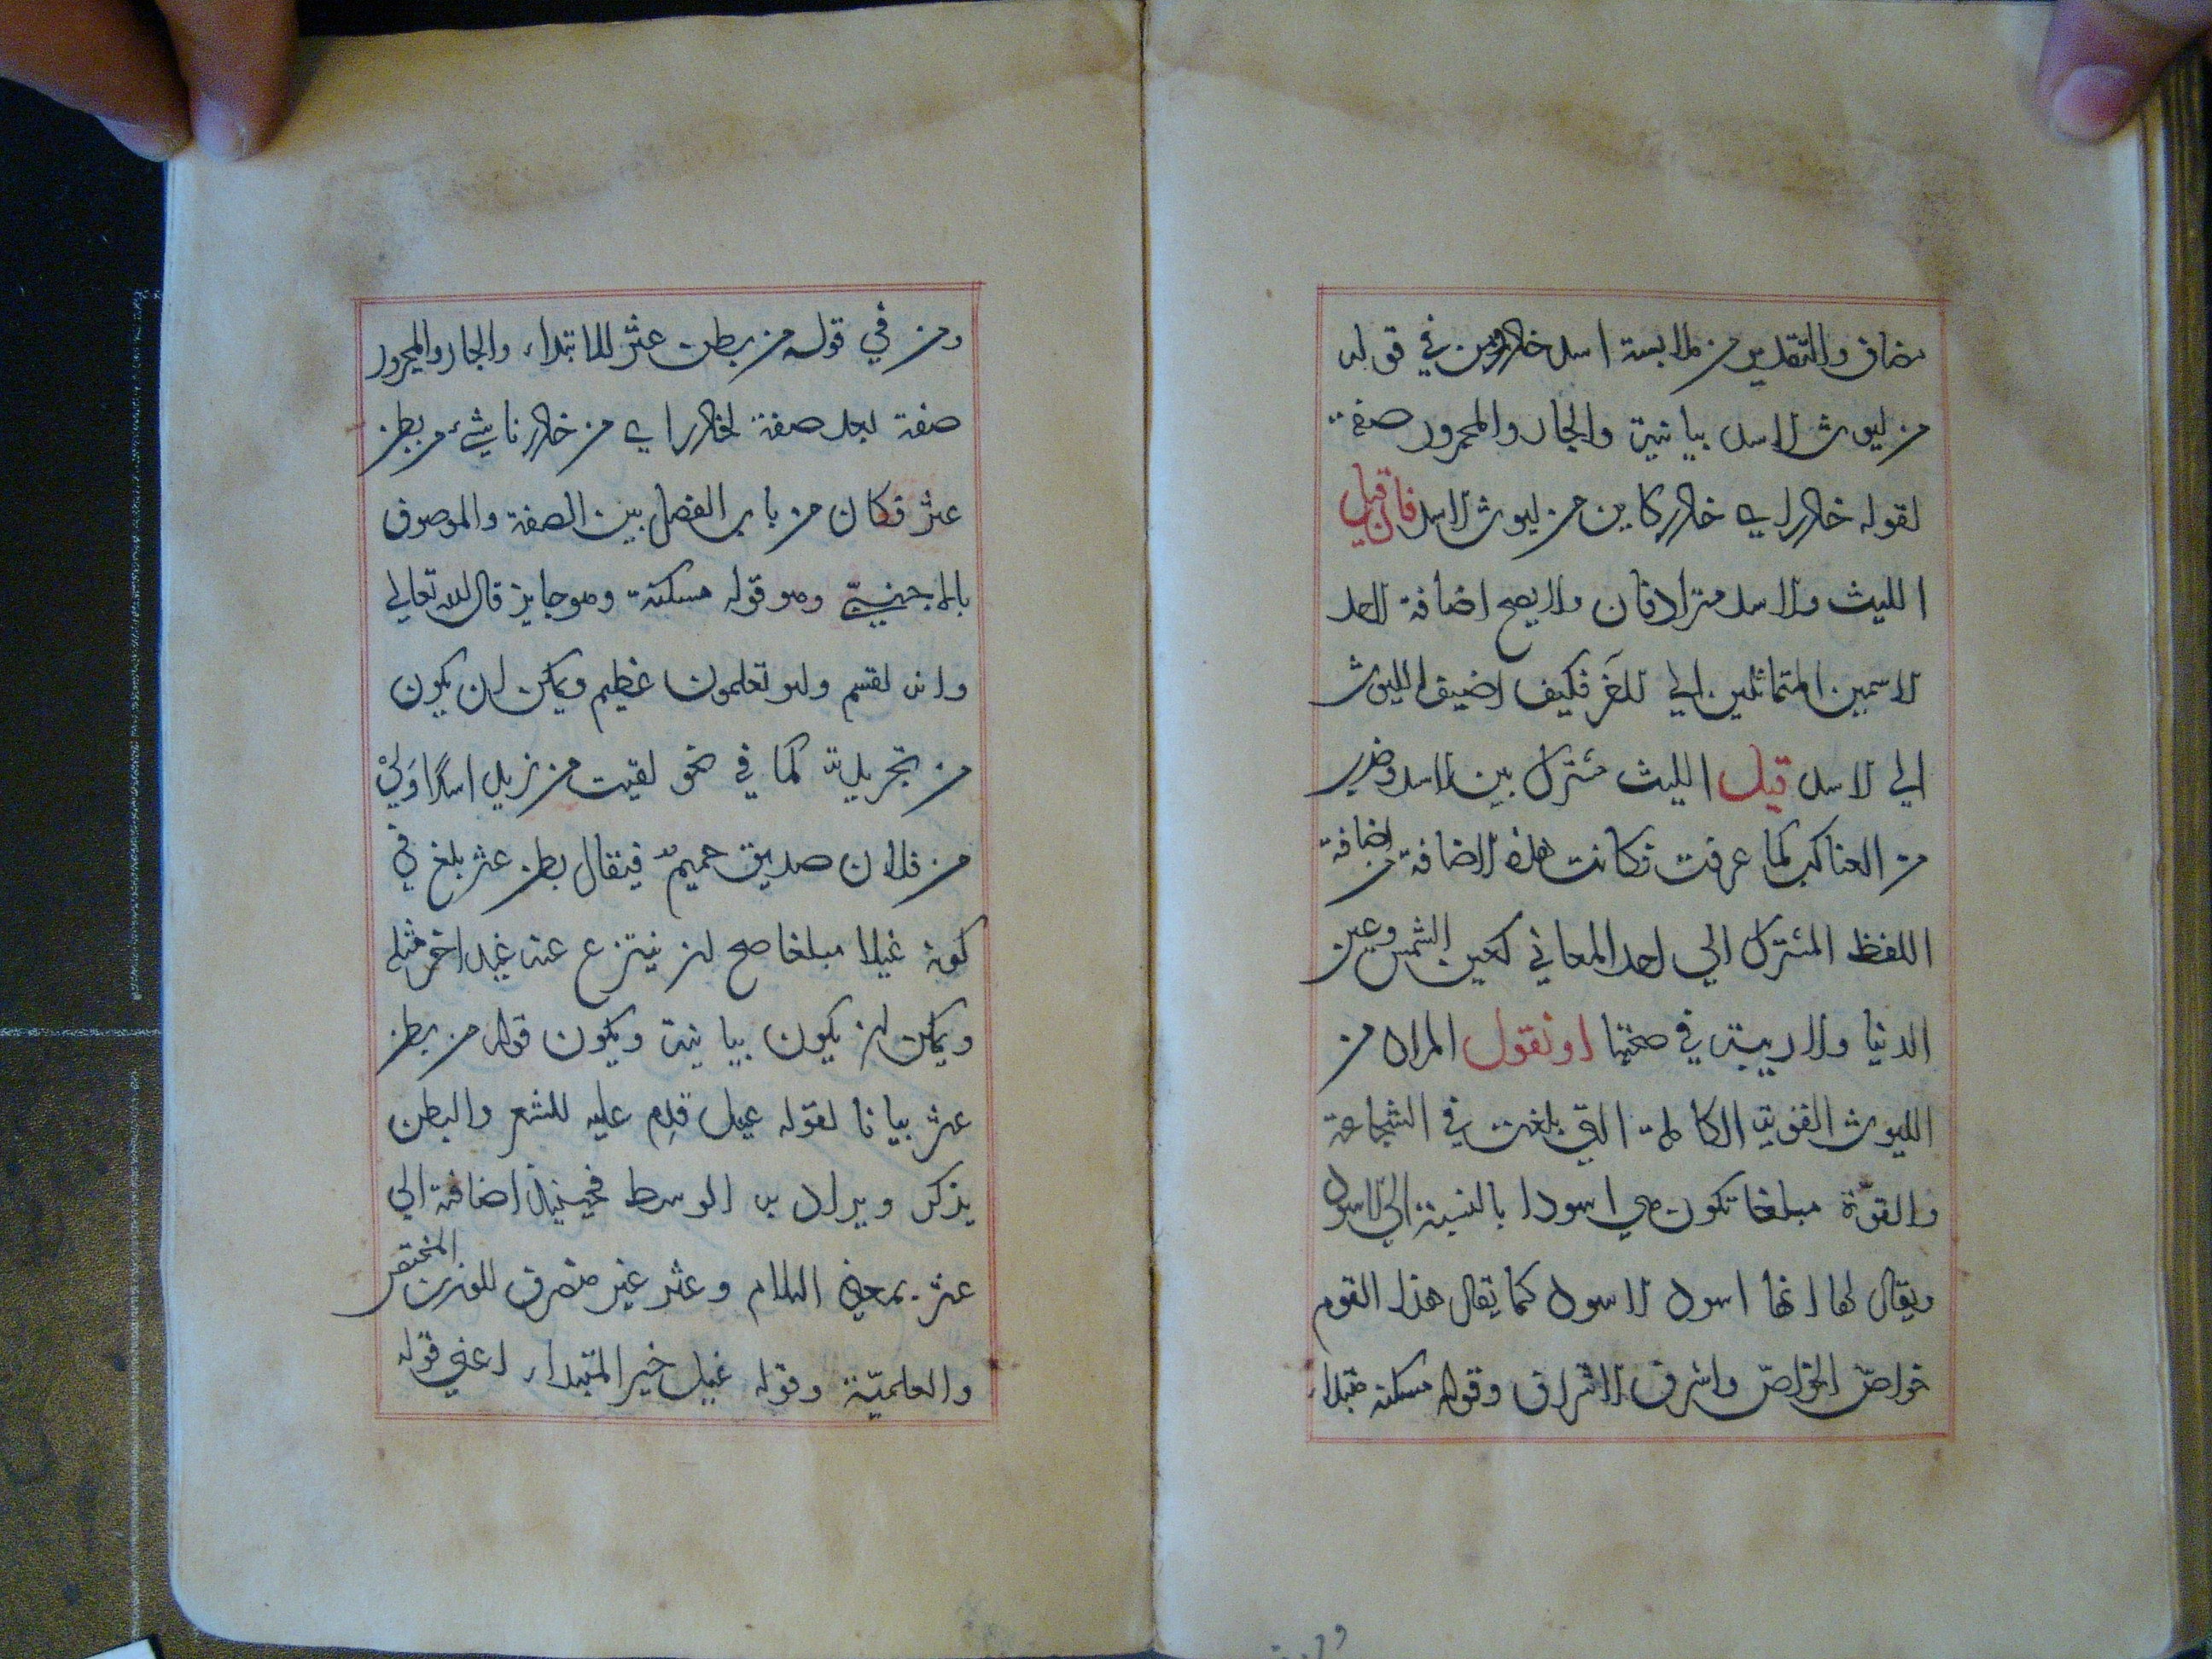 مضاف والتقدير من ملابسة اسد خادر ومن في قوله
من ليوث الاسد بيانية والجار والمجرور صفة
لقوله خادر اي خادر كاين من ليوث الاسد فان قيل
الليث والاسد مترادفان ولا يصح اضافة احد
الاسمين المتماثلين الي الآخر فكيف اضيف الليوث
الي الاسد قيل الليث مشترك بين الاسد وضرب
من العناكب كما عرفت فكانت هذه الاضافة من اضافة
اللفظ المشترك الي احد المعاني كعين الشمس وعين
الدنيا ولا ريبة في صحتها او نقول المراد من
الليوث القوية الكاملة التي بلغت في الشجاعة
والقوّة مبلغا تكون هي اسودا بالنسبة الي الاسود
ويقال لها انها اسود الاسود كما يقال هذا القوم
خواصّ الخواصّ واشرف الاشراف وقوله مسكنه مبتداء
ومن في قوله من بطن عثر للابتداء والجار والمجرور
صفة بعد صفة لخادر اي من خادر ناشئ من بطن
عثر فكان من باب الفصل بين الصفة والموصوف
بالاجنبيّ وهو قوله مسكنه وهو جايز قال الله تعالي
وانه لقسم ولو تعلمون عظيم ويمكن ان يكون
من تجريدية كما في نحو لقيت من زيد اسدا ولي
من فلان صديق حميم فيقال بطن عثر بلغ في
كونه غيلا مبلغا صح ان ينتزع عنه غيل اخر مثله
ويمكن ان يكون بيانية ويكون قوله من بطن
عثر بيانا لقوله غيل قدم عليه للشعر والبطن
يذكر ويراد به الوسط فحينئذ اضافته الي
عثر بمعني اللام وعثر غير منصرف للوزن المختص
والعلميّة وقوله غيل خبر المبتداء اعني قوله